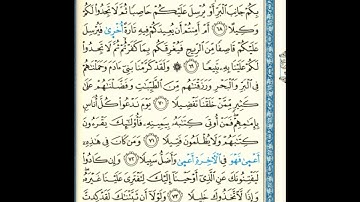 بِكُمْ جَانِبَ ٱلْبَرِّ أَوْ يُرْسِلَ عَلَيْكُمْ حَاصِبًا ثُمَّ لَا تَجِدُوا۟ لَكُمْ
وَكِيلًا ٦٨ أَمْ أَمِنتُمْ أَن يُعِيدَكُمْ فِيهِ تَارَةً أُخْرَىٰ فَيُرْسِلَ
عَلَيْكُمْ قَاصِفًا مِّنَ ٱلرِّيحِ فَيُغْرِقَكُم بِمَا كَفَرْتُمْ ثُمَّ لَا تَجِدُوا۟
لَكُمْ عَلَيْنَا بِهِۦ تَبِيعًا ٦٩ ۞ وَلَقَدْ كَرَّمْنَا بَنِىٓ ءَادَمَ وَحَمَلْنَٰهُمْ
فِى ٱلْبَرِّ وَٱلْبَحْرِ وَرَزَقْنَٰهُم مِّنَ ٱلطَّيِّبَٰتِ وَفَضَّلْنَٰهُمْ عَلَىٰ
كَثِيرٍ مِّمَّنْ خَلَقْنَا تَفْضِيلًا ٧٠ يَوْمَ نَدْعُوا۟ كُلَّ أُنَاسٍۭ
بِإِمَٰمِهِمْ فَمَنْ أُوتِىَ كِتَٰبَهُۥ بِيَمِينِهِۦ فَأُو۟لَٰٓئِكَ يَقْرَءُونَ
كِتَٰبَهُمْ وَلَا يُظْلَمُونَ فَتِيلًا ٧١ وَمَن كَانَ فِى هَٰذِهِۦٓ
أَعْمَىٰ فَهُوَ فِى ٱلْءَاخِرَةِ أَعْمَىٰ وَأَضَلُّ سَبِيلًا ٧٢ وَإِن كَادُوا۟
لَيَفْتِنُونَكَ عَنِ ٱلَّذِىٓ أَوْحَيْنَآ إِلَيْكَ لِتَفْتَرِىَ عَلَيْنَا غَيْرَهُۥ
وَإِذًا لَّٱتَّخَذُوكَ خَلِيلًا ٧٣ وَلَوْلَآ أَن ثَبَّتْنَٰكَ لَقَدْ كِدتَّ